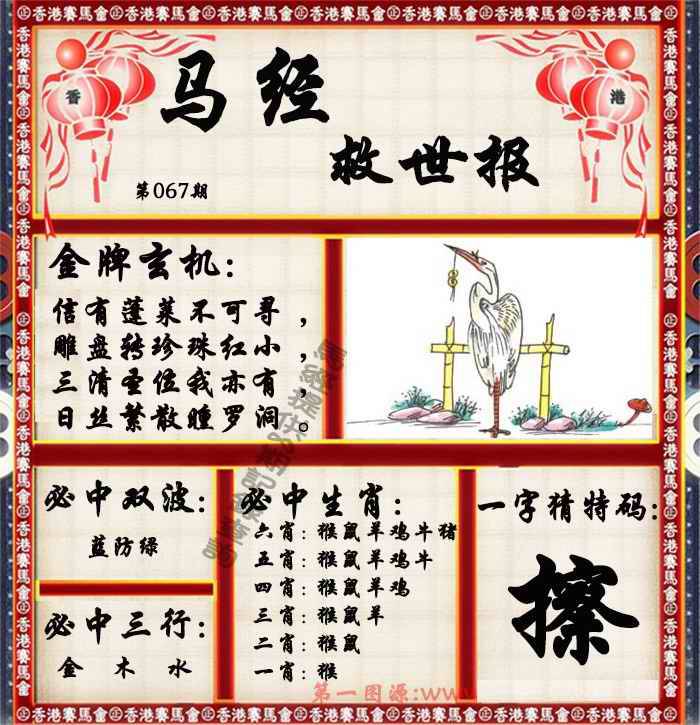 香港賽馬會
香 港
马经
救世报
第067期
金牌玄机：
信有蓬莱不可寻，
雕盘转珍珠红小，
三清圣位我亦有，
日丝繁散曈罗洞。
必中双波：
蓝防绿
必中三行：
金 木 水
必中生肖：
六肖：猴鼠羊鸡牛猪
五肖：猴鼠羊鸡牛
四肖：猴鼠羊鸡
三肖：猴鼠羊
二肖：猴鼠
一肖：猴
一字猜特码：
擦
第一图源:www